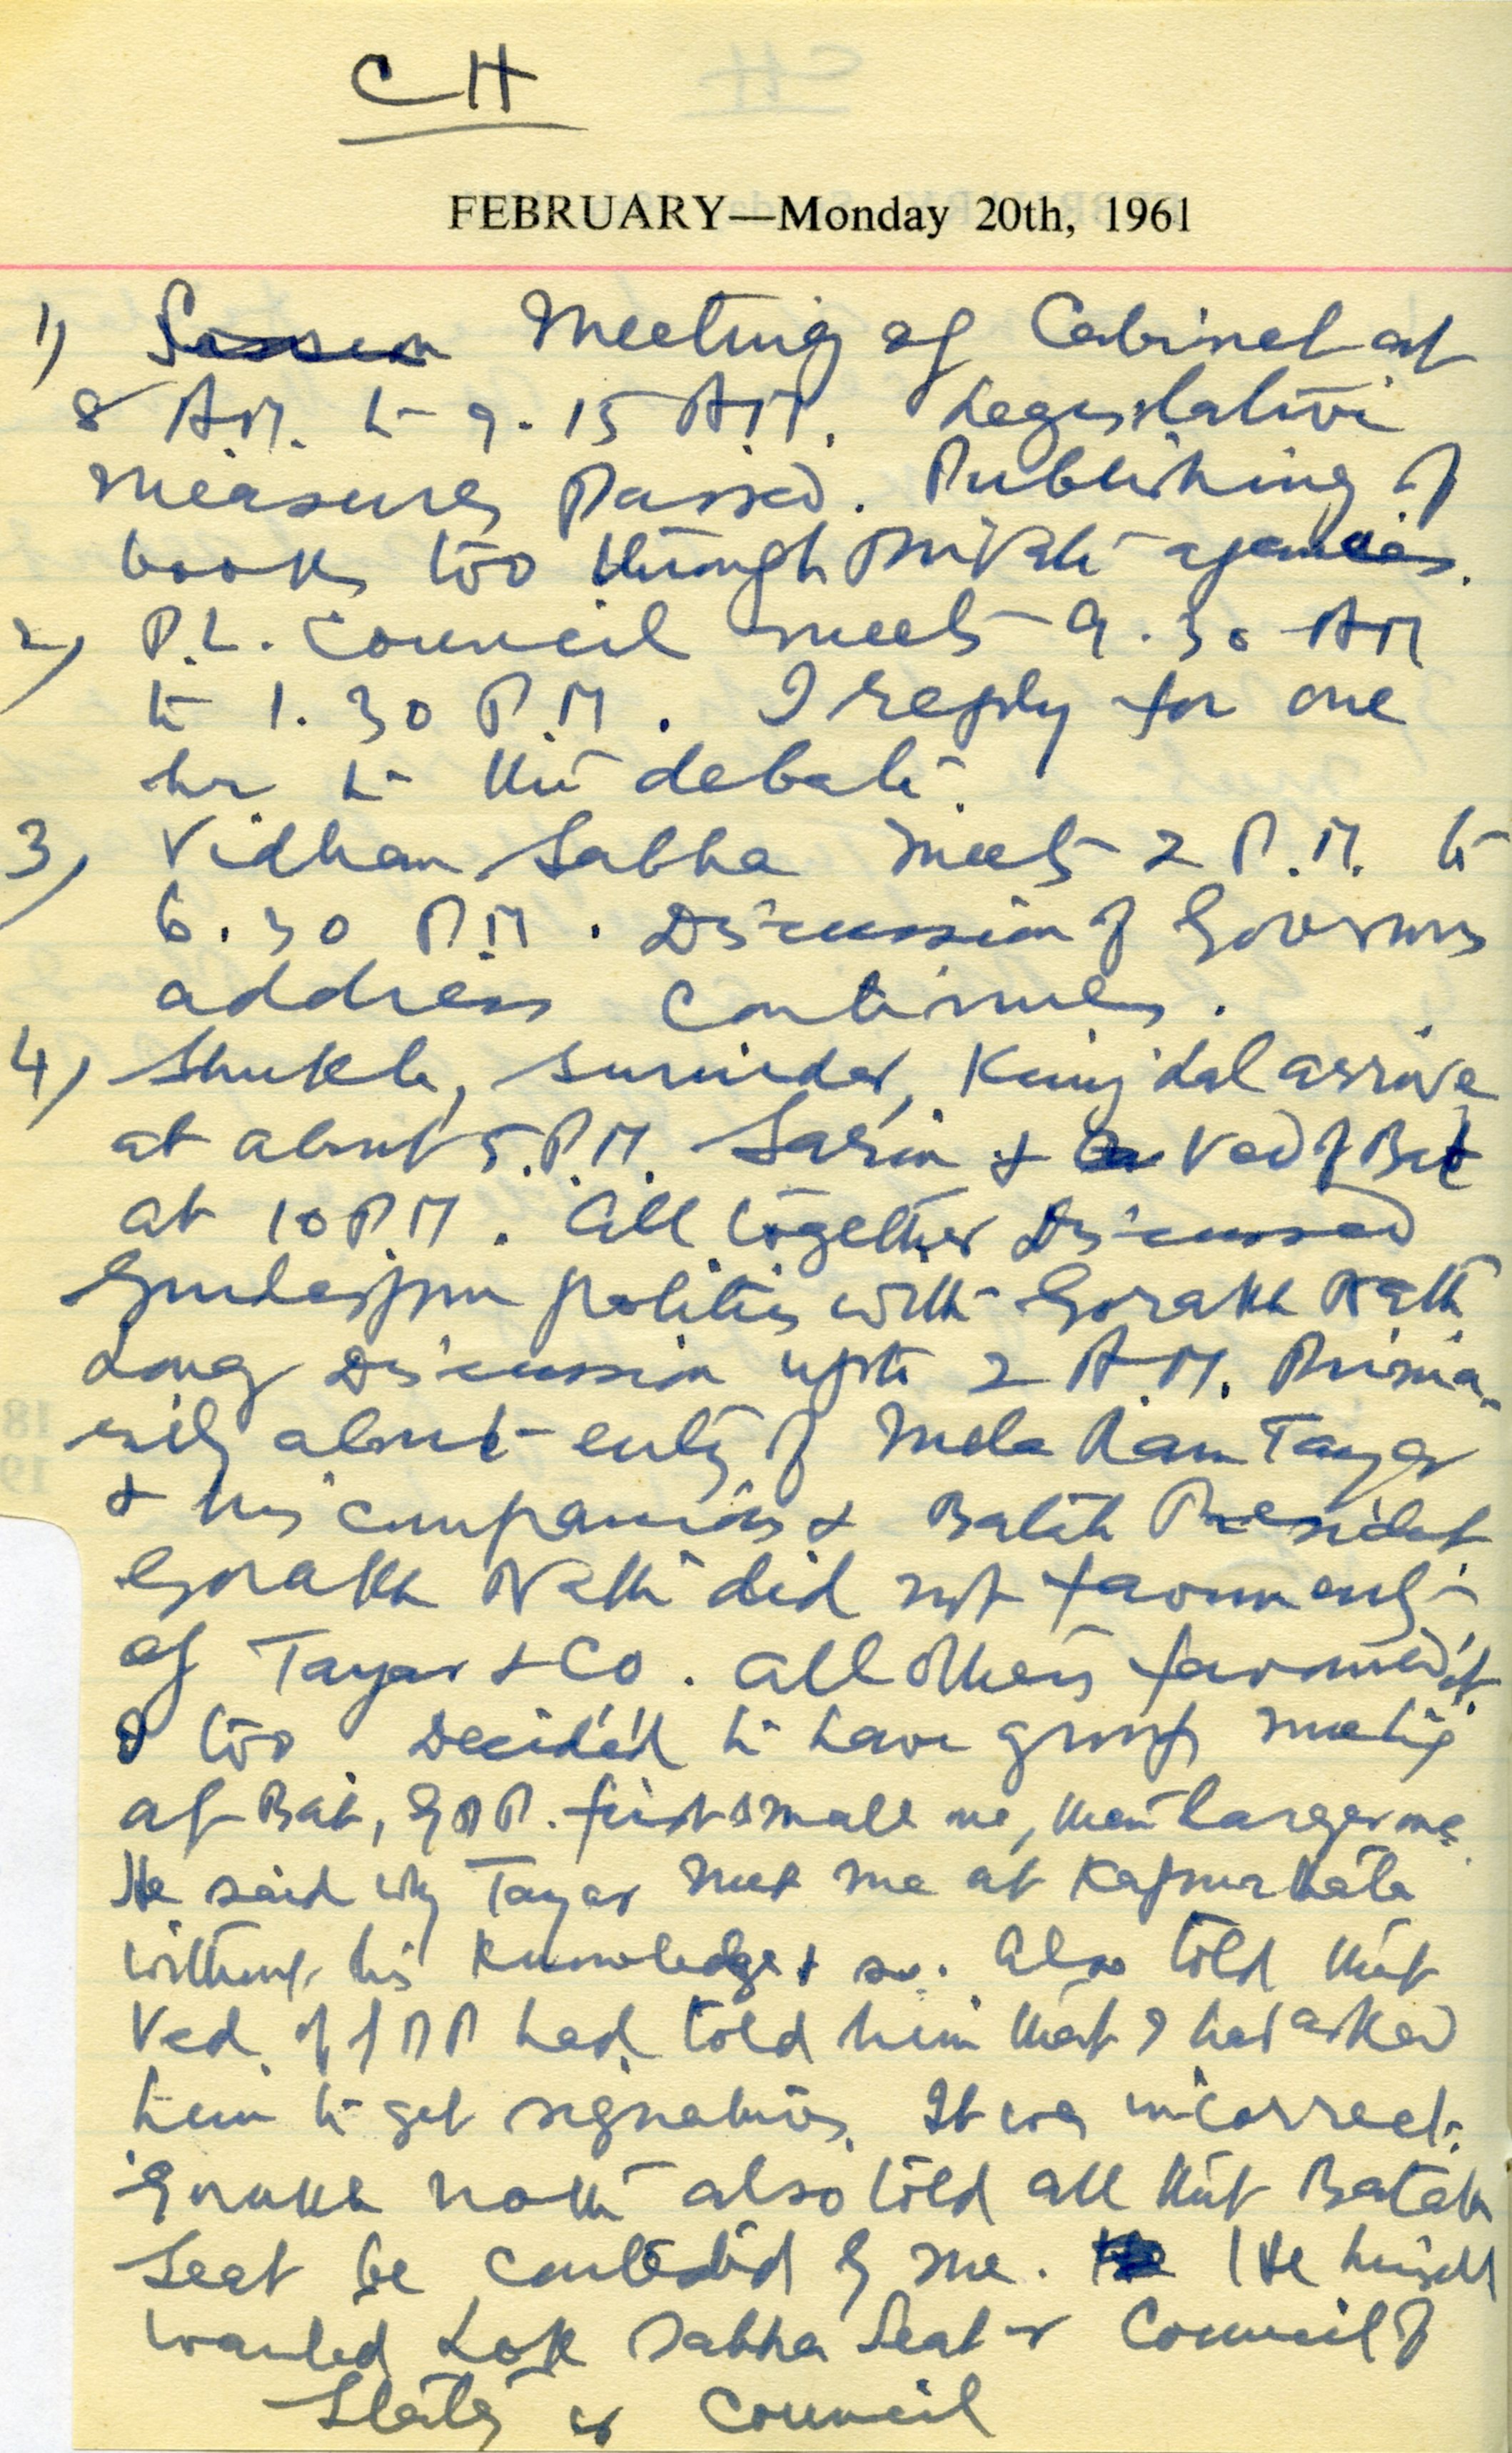 CH
FEBRUARY—Monday 20th, 1961
1) Meeting of Cabinet at
8 A.M. to 9.15 A.M. Legislative
measures passed. Publishing of
books too through private agencies.
2) P.L. Council meets 9.30 AM
to 1.30 P.M. I reply for one
hr to the debate.
3) Vidhan Sabha meets 2 P.M. to
6.30 P.M. Discussion of Governors
address continues.
4) Shukla, Surinder, Kunj Lal arrive
at about 5.P.M. Sarin & Ved of Bat
at 10 P.M. All together Discussed
Gurdaspur politics with Gorakh Nath
Long Discussion upto 2 A.M. Prima-
rily about entry of Mela Ram Tayar
& his companions & Batala President
Gorakh Nath did not favour entry
of Tayar & Co. All others favoured it
I too Decided to have group meeting
at Bat, GDP. first small one, then larger one.
He said why Tayar met me at Kapurthala
without his knowledge & so. Also told that
Ved of GDP had told him that I had asked
him to get signatures. It was incorrect.
Gorakh Nath also told all that Batala
Seat be contested by me. He himself
wanted Lok Sabha Seat or Council of
States or Council